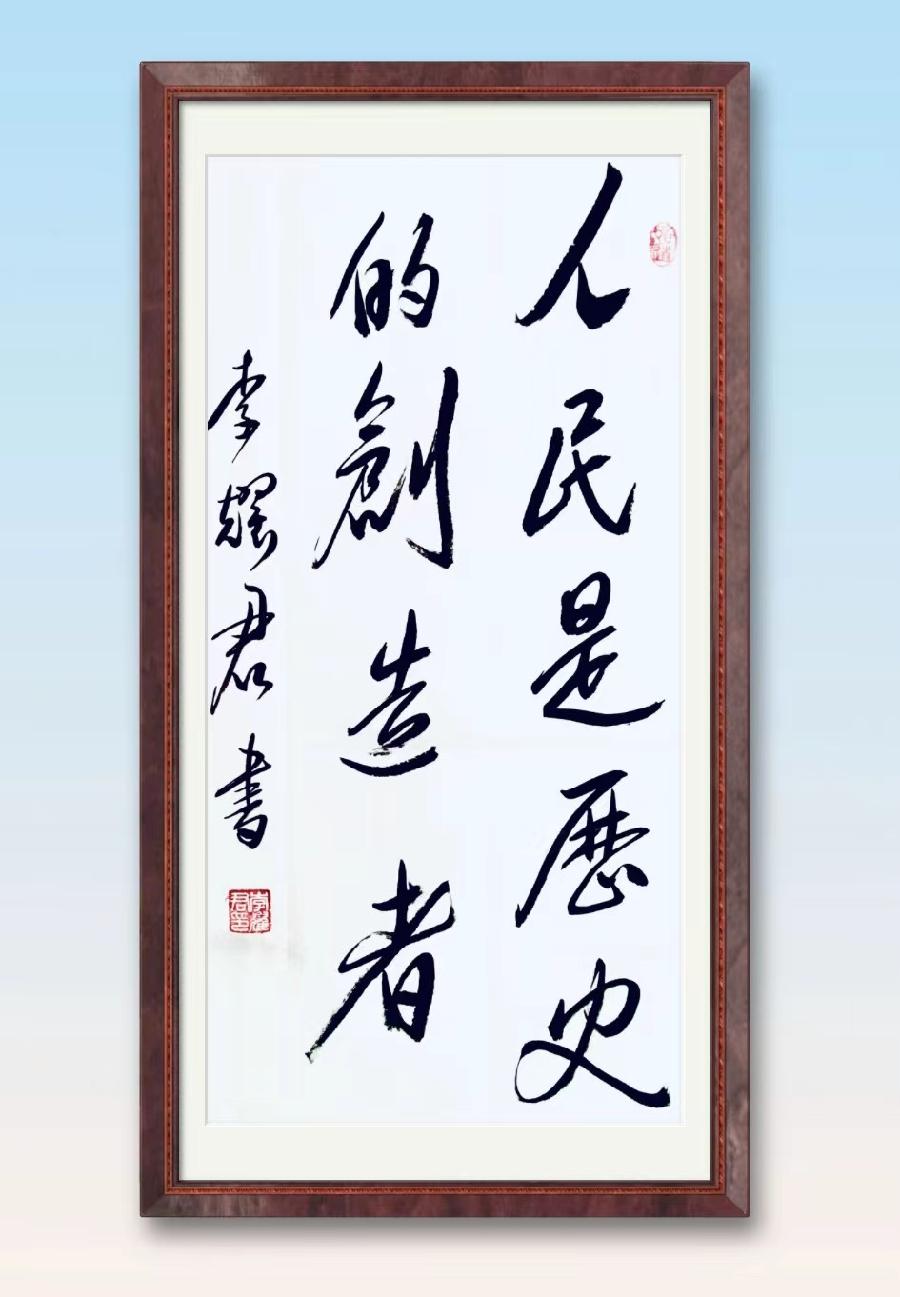 人民是歷史
的創造者
李耀君書